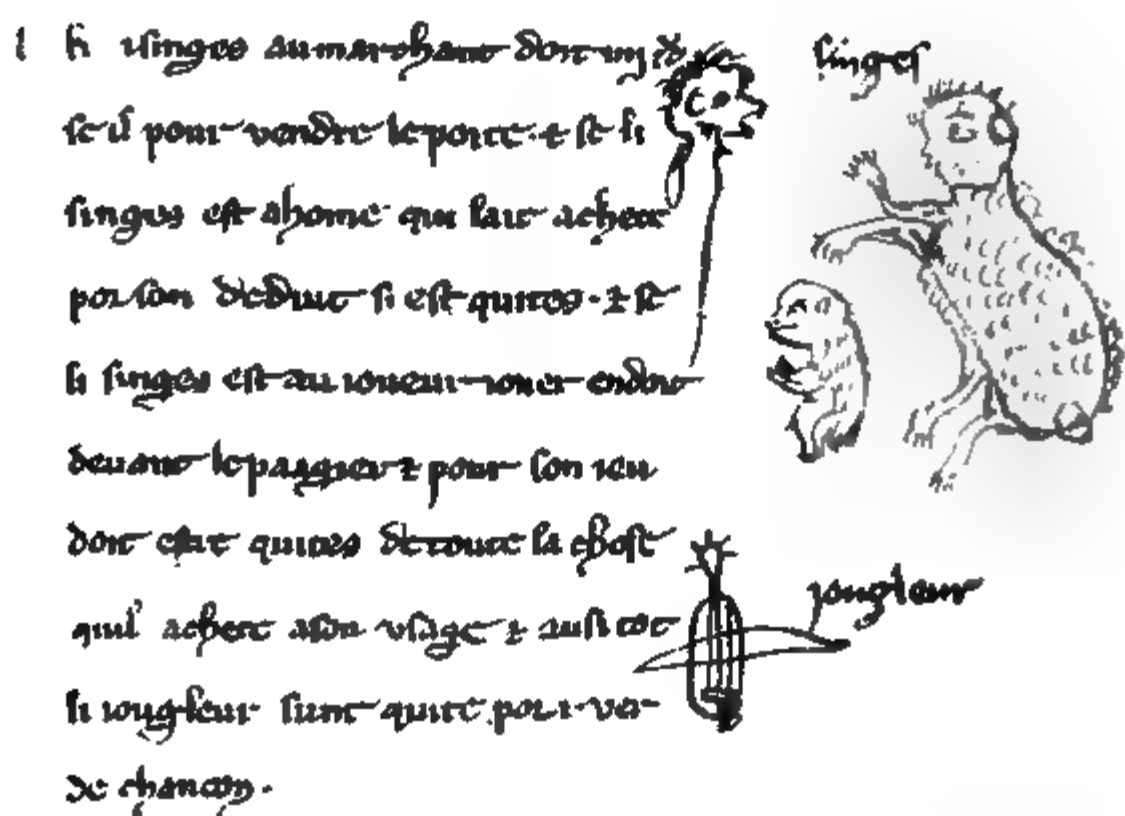 l li singes au marchant doit iiij d
se il pour vendre le porte · ⁊ se li
singes est a home qui lait achete
por son deduit si est quites · ⁊ se
li singes est au ioueur iouer en doit
deuant le paagier ⁊ pour son ieu
doit estre quites de toute la chose
quil achete a son vsage ⁊ ausi tot
li iougleur sunt quite por · i · ver
de chancon ·
singes
jougleur